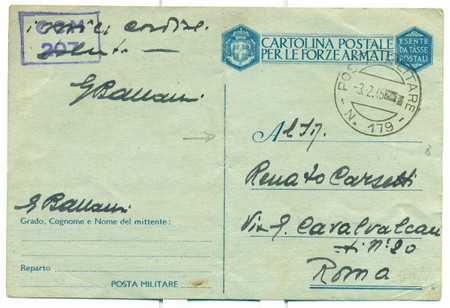 COM
207
saluti cordiali
CARTOLINA POSTALE
PER LE FORZE ARMATE
ESENTE
DA TASSE
POSTALI
POSTA MILITARE
-3.2.45
N. 179
Al Sig.
Renato Carsetti
Via G. Cavalvalcan
ti N° 20
Roma
Grado, Cognome e Nome del mittente:
Reparto
POSTA MILITARE